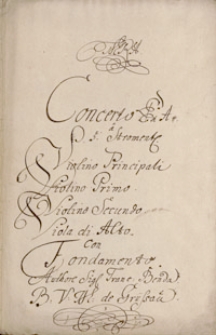 Concerto Ex A♮.
a 5. Stromenti
Violino Principale
Violino Primo
Violino Secundo
Viola di Alto.
Con
Fondamento.
Authore Sigl Franc. Benda
de Grusau